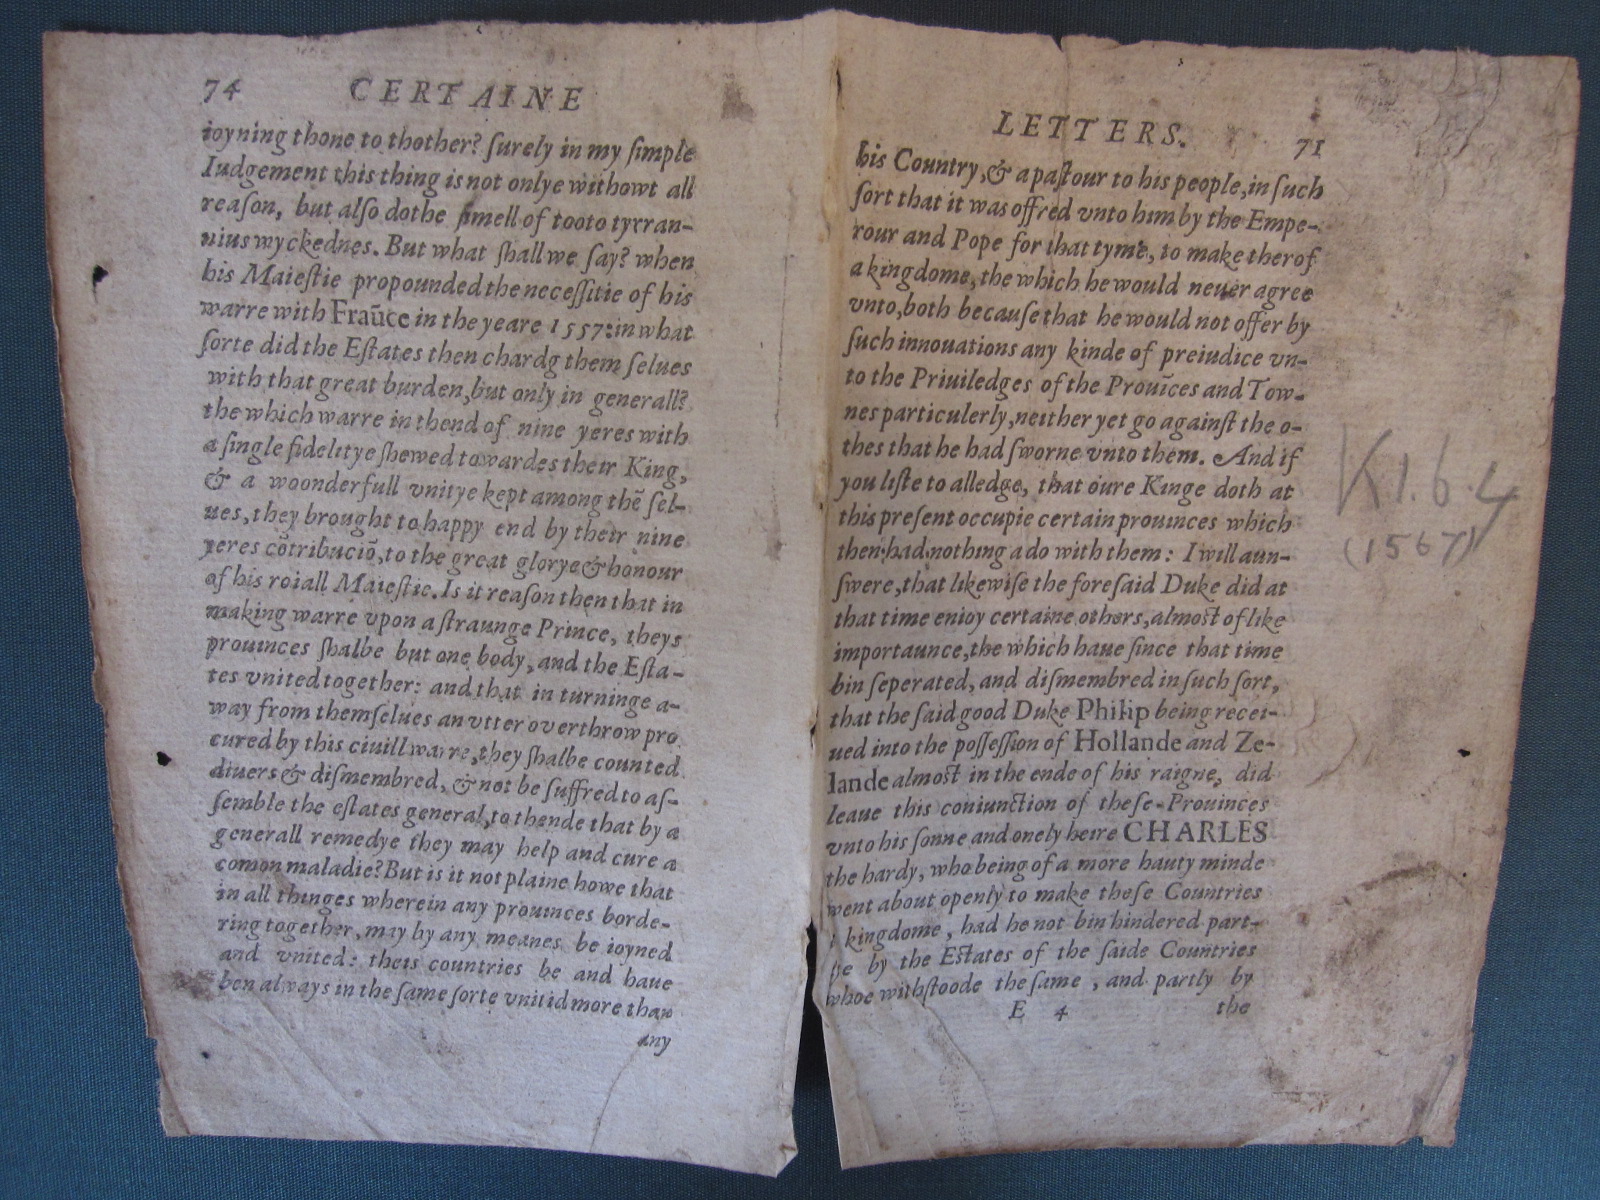 74 CERTAINE
ioyning thone to thother? ſurely in my ſimple
Iudgement this thing is not onlye withowt all
reaſon, but alſo dothe ſmell of tooto tyrran-
nius wyckednes. But what ſhall we ſay? when
his Maieſtie propounded the neceſſitie of his
warre with Fraūce in the yeare 1557: in what
ſorte did the Eſtates then chardg them ſelues
with that great burden, but only in generall?
the which warre in thend of nine yeres with
a ſingle fidelitye ſhewed towardes their King,
& a woonderfull vnitye kept among thē ſel-
ues, they brought to happy end by their nine
yeres cōtribuciō, to the great glorye & honour
of his roiall Maieſtie. Is it reaſon then that in
making warre vpon a ſtraunge Prince, theys
prouinces ſhalbe but one body, and the Eſta-
tes vnited together: and that in turninge a-
way from themſelues an vtter overthrow pro
cured by this ciuill warre, they ſhalbe counted
diuers & diſmembred, & not be ſuffred to aſ-
ſemble the eſtates general, to thende that by a
generall remedye they may help and cure a
comon maladie? But is it not plaine howe that
in all thinges wherein any prouinces borde-
ring together, may by any meanes be ioyned
and vnited: theis countries be and haue
ben always in the ſame ſorte vnitid more than
any
LETTERS. 71
his Country, & a paſtour to his people, in ſuch
ſort that it was offred vnto him by the Empe-
rour and Pope for that tyme, to make therof
a kingdome, the which he would neuer agree
vnto, both becauſe that he would not offer by
ſuch innouations any kinde of preiudice vn-
to the Priuiledges of the Prouīces and Tow-
nes particulerly, neither yet go againſt the o-
thes that he had ſworne vnto them. And if
you liſte to alledge, that oure Kinge doth at
this preſent occupie certain prouinces which
then had nothing ado with them: I will aun-
ſwere, that likewiſe the foreſaid Duke did at
that time enioy certaine others, almoſt of like
importaunce, the which haue ſince that time
bin ſeperated, and diſmembred in ſuch ſort,
that the ſaid good Duke Philip being recei-
ued into the poſſeſſion of Hollande and Ze-
lande almoſt in the ende of his raigne, did
leaue this coniunction of theſe Prouinces
vnto his ſonne and onely heire CHARLES
the hardy, who being of a more hauty minde
went about openly to make thoſe Countries
kingdome, had he not bin hindered part-
by the Eſtates of the ſaide Countries
whoe withſtoode the ſame, and partly by
E 4 the
K1.6.4
(1567)